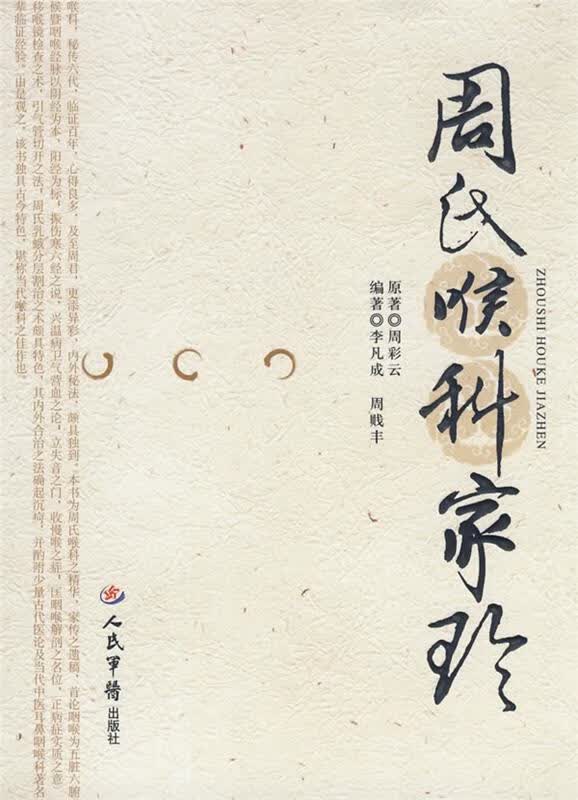 周氏喉科家珍
ZHOUSHI HOUKE JIAZHEN
原著◎周彩云
编著◎李凡成 周贱丰
人民军医出版社
喉科，秘传六代，临证百年，心得良多，及至周君，更添异彩，内外秘法，颇具独到。本书为周氏喉科之精华、家传之遗稿，首论咽喉为五脏六腑
候暨咽喉经脉以阴经为本，阳经为标，振伤寒六经之说，兴温病卫气营血之论，立失音之门，收慢喉之症，匡咽喉解剖之名位，正病症实质之意，
移喉镜检查之术，引气管切开之法，周氏乳蛾分层割治之术颇具特色，其内外合治之法确起沉疴，并酌附少量古代医论及当代中医耳鼻咽喉科著名
辈临证经验。由是观之，该书独具古今特色，堪称当代喉科之佳作也。